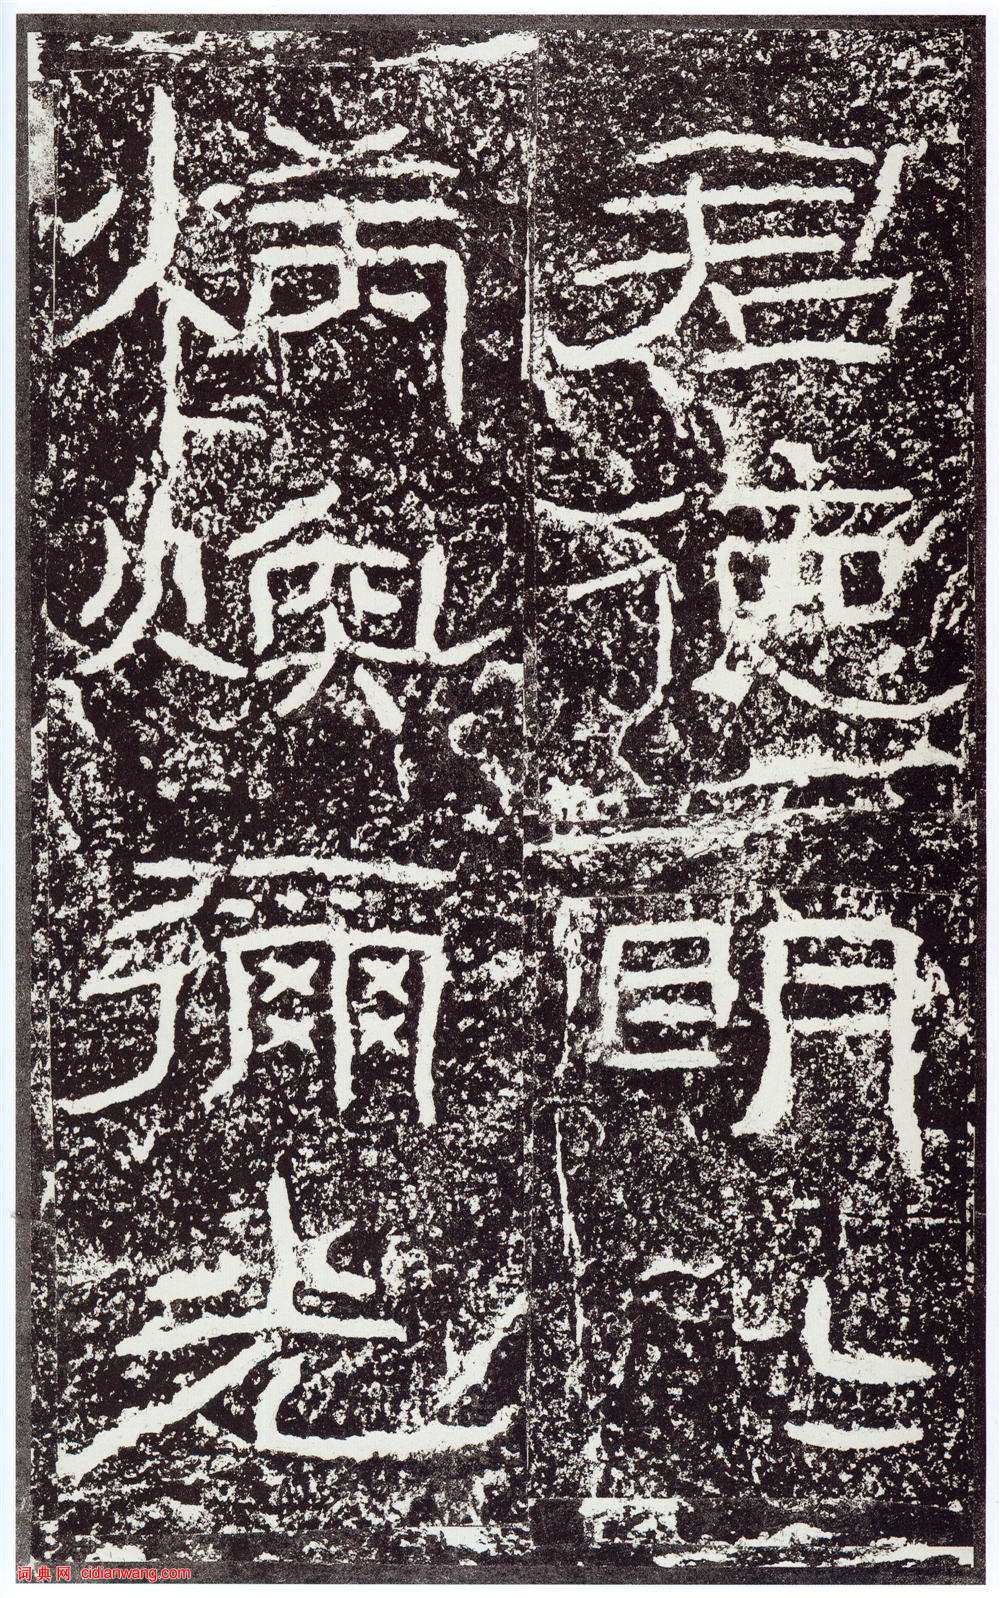 君德明
炳煥彌光
词典网 cidianwang.com